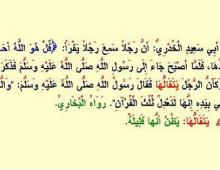 أَبِي سَعِيدٍ الْخُدْرِيِّ: أَنَّ رَجُلًا سَمِعَ رَجُلًا يَقْرَأُ: ﴿قُلْ هُوَ اللَّهُ أَحَ
دُهَا، فَلَمَّا أَصْبَحَ جَاءَ إِلَى رَسُولِ اللَّهِ صَلَّى اللَّهُ عَلَيْهِ وَسَلَّمَ فَذَكَرَ
وَكَأَنَّ الرَّجُلَ يَتَقَالُّهَا فَقَالَ رَسُولُ اللَّهِ صَلَّى اللَّهُ عَلَيْهِ وَسَلَّمَ: "وَالَّ
ي بِيَدِهِ إِنَّهَا لَتَعْدِلُ ثُلُثَ الْقُرْآنِ". رَوَاهُ الْبُخَارِيُّ.
يَتَقَالُّهَا: يَظُنُّ أَنَّهَا قَلِيلَةٌ.